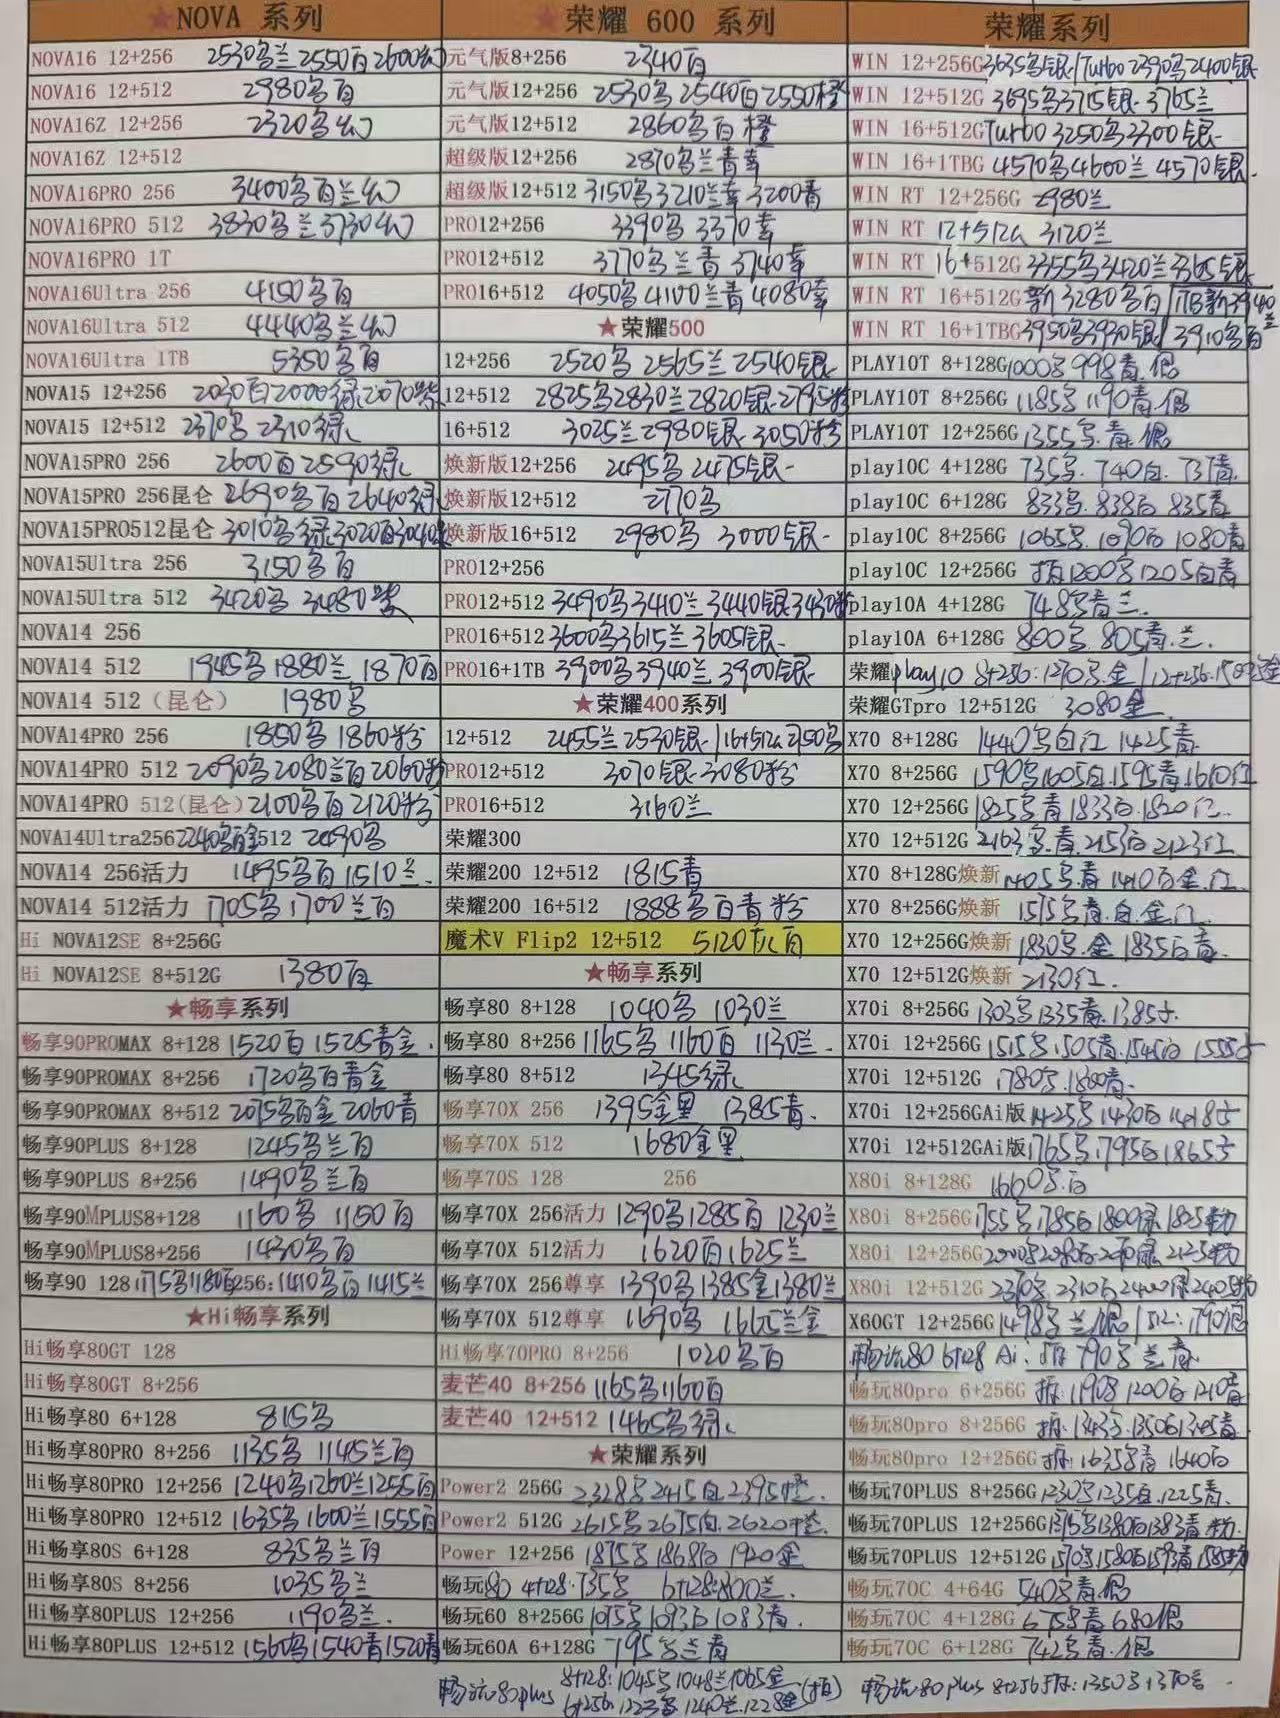 ★NOVA 系列
NOVA16 12+256 2530乌兰2550百2600幻
NOVA16 12+512 2980乌百
NOVA16Z 12+256 2320乌幻
NOVA16Z 12+512
NOVA16PRO 256 3400乌百兰幻
NOVA16PRO 512 3830乌兰3730幻
NOVA16PRO 1T
NOVA16Ultra 256 4150乌百
NOVA16Ultra 512 4440乌兰幻
NOVA16Ultra 1TB 5350乌百
NOVA15 12+256 2030百2000绿2070紫
NOVA15 12+512 2370乌 2310绿
NOVA15PRO 256 2600百2590绿
NOVA15PRO 256昆仑 2690乌百2640绿
NOVA15PRO512昆仑 3010乌绿3020百3040
NOVA15Ultra 256 3150乌百
NOVA15Ultra 512 3420乌 3480紫
NOVA14 256
NOVA14 512 1945乌1880兰1870百
NOVA14 512（昆仑） 1980乌
NOVA14PRO 256 1850乌1860粉
NOVA14PRO 512 2090乌2080兰百2060粉
NOVA14PRO 512(昆仑) 2100乌百2120粉
NOVA14Ultra256 2240乌百金512 2490乌
NOVA14 256活力 1495乌百1510兰
NOVA14 512活力 1705乌1700兰百
Hi NOVA12SE 8+256G
Hi NOVA12SE 8+512G 1380百
★畅享系列
畅享90PROMAX 8+128 1520百1525青金
畅享90PROMAX 8+256 1720乌百青金
畅享90PROMAX 8+512 2075乌百金2060青
畅享90PLUS 8+128 1245乌兰百
畅享90PLUS 8+256 1490乌兰百
畅享90MPLUS8+128 1160乌 1150百
畅享90MPLUS8+256 1430乌百
畅享90 128 1175乌1180百256:1410乌百1415兰
★Hi畅享系列
Hi畅享80GT 128
Hi畅享80GT 8+256
Hi畅享80 6+128 815乌
Hi畅享80PRO 8+256 1135乌 1145兰百
Hi畅享80PRO 12+256 1240乌1260兰1255百
Hi畅享80PRO 12+512 1635乌1600兰1555百
Hi畅享80S 6+128 835乌兰百
Hi畅享80S 8+256 1035乌兰
Hi畅享80PLUS 12+256 1190乌兰
Hi畅享80PLUS 12+512 1560乌1540青1520青
★荣耀 600 系列
元气版8+256 2340百
元气版12+256 2530乌2540百2550橙
元气版12+512 2860乌百橙
超级版12+256 2870乌兰青幸
超级版12+512 3150乌3210兰幸3200青
PRO12+256 3390乌 3370幸
PRO12+512 3770乌兰青3740幸
PRO16+512 4050乌4100兰青4080幸
★荣耀500
12+256 2520乌 2565兰 2540银
12+512 2825乌2830兰2820银2795粉
16+512 3025兰2980银3050粉
焕新版12+256 2495乌 2475银
焕新版12+512 2770乌
焕新版16+512 2980乌 3000银
PRO12+256
PRO12+512 3490乌3410兰3440银3430粉
PRO16+512 3600乌3615兰3605银
PRO16+1TB 3900乌3940兰3900银
★荣耀400系列
12+512 2455兰2530银/16+512G 2750乌
PRO12+512 3070银3080粉
PRO16+512 3160兰
荣耀300
荣耀200 12+512 1815青
荣耀200 16+512 1888乌百青粉
魔术V Flip2 12+512 5120灰百
★畅享系列
畅享80 8+128 1040乌 1030兰
畅享80 8+256 1165乌1160百1130兰
畅享80 8+512 1345绿
畅享70X 256 1395金黑 1385青
畅享70X 512 1680金黑
畅享70S 128 256
畅享70X 256活力 1290乌1285百1230兰
畅享70X 512活力 1620百1625兰
畅享70X 256尊享 1390乌1385金1380兰
畅享70X 512尊享 1690乌 1665兰金
Hi畅享70PRO 8+256 1020乌百
麦芒40 8+256 1165乌1160百
麦芒40 12+512 1465乌绿
★荣耀系列
Power2 256G 2328乌2415白2395橙
Power2 512G 2615乌2675白2620橙
Power 12+256 1875乌1868白1920金
畅玩80 4+128.735乌 6+128:800兰
畅玩60 8+256G 1075乌1093白1083青
畅玩60A 6+128G 795乌兰青
荣耀系列
WIN 12+256G 3635乌银/Turbo2390乌2400银
WIN 12+512G 3695乌3715银3765兰
WIN 16+512G Turbo 3250乌3300银
WIN 16+1TBG 4570乌4600兰4570银
WIN RT 12+256G 2980兰
WIN RT 12+512G 3120兰
WIN RT 16+512G 3355乌3420兰3365银
WIN RT 16+512G 新3280乌百/1TB新3940兰
WIN RT 16+1TBG 3950乌3930银/3910乌百
PLAY10T 8+128G 1000乌998青.
PLAY10T 8+256G 1185乌1190青.
PLAY10T 12+256G 1355乌.青.
play10C 4+128G 735乌.740白.737青
play10C 6+128G 833乌.838白 835青
play10C 8+256G 1065乌.1090白1080青
play10C 12+256G 拆1200乌1205白青
play10A 4+128G 748乌青兰
play10A 6+128G 800乌.805青.兰
荣耀play10 8+256:1270乌.金/12+256.1509乌金
荣耀GTpro 12+512G 3080金
X70 8+128G 1440乌白红 1425青
X70 8+256G 1590乌1605白1595青1610红
X70 12+256G 1825乌青1833白1820红
X70 12+512G 2163乌.青.2153白2123红
X70 8+128G焕新 1405乌.青1410百金.红
X70 8+256G焕新 1575乌青.白.金.红
X70 12+256G焕新 1830乌.金1835白青
X70 12+512G焕新 2130红
X70i 8+256G 1303乌1335青.1385
X70i 12+256G 1515乌.1505青.1545白 1555
X70i 12+512G 1780乌.1800青
X70i 12+256GAi版 1425乌1430白1485
X70i 12+512GAi版 1765乌.1795白1865
X80i 8+128G 1660乌百
X80i 8+256G 1755乌1785白1800绿1825粉
X80i 12+256G
X80i 12+512G 2370乌 2310白2400绿2405粉
X60GT 12+256G 1498乌兰/512:1790
畅玩80 6+128 Ai:拆790乌兰青
畅玩80pro 6+256G 拆:1190乌1200白1210青
畅玩80pro 8+256G 拆:1343乌.1350白1365青
畅玩80pro 12+256G 拆:1635乌青1640白
畅玩70PLUS 8+256G 1230乌1235白1225青
畅玩70PLUS 12+256G 1375乌1380白1383青粉
畅玩70PLUS 12+512G 1570乌1580白1593青1585粉
畅玩70C 4+64G 540乌青
畅玩70C 4+128G 675乌青680
畅玩70C 6+128G 742乌青
畅玩80plus 8+128:1045乌1048兰1065金
6+256:1223乌1240兰1228金(拍)
畅玩80plus 8+256拆:1350乌1370